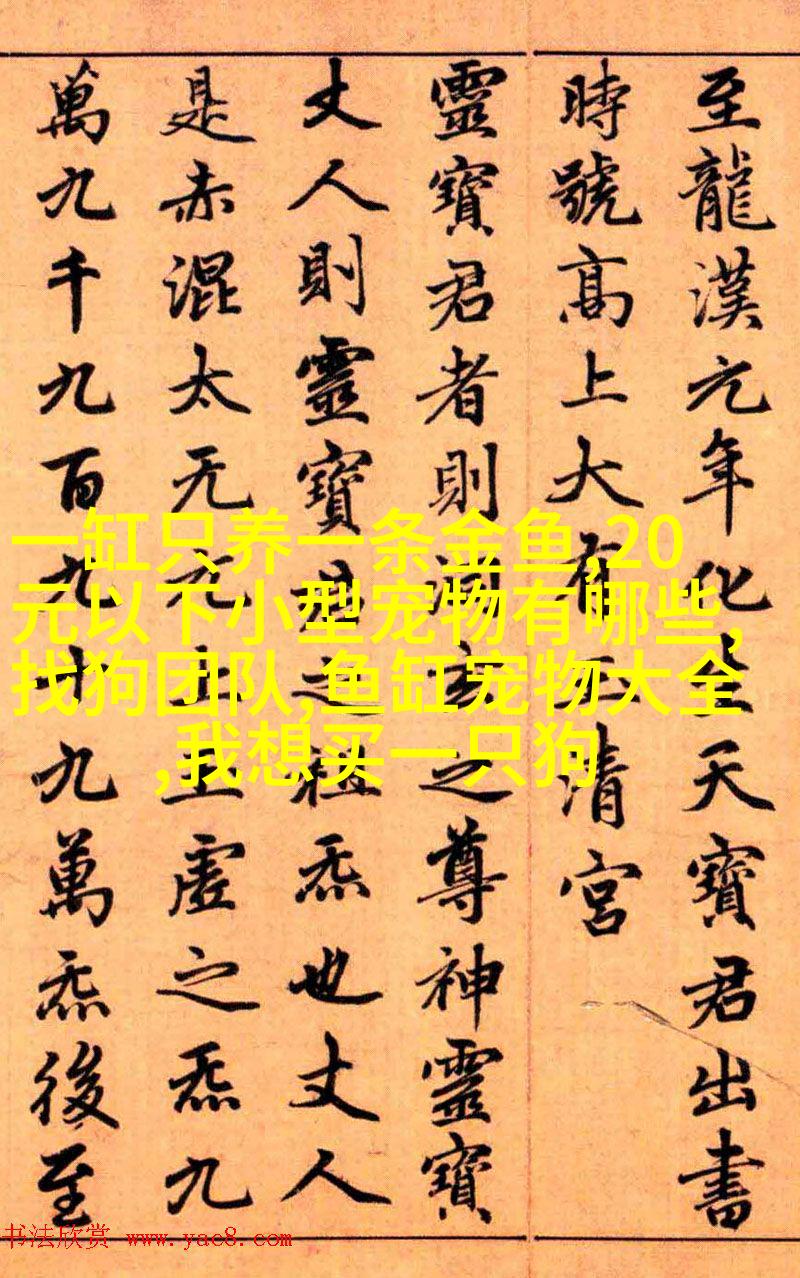 至龍漢元年化生天寶君出書
時號高上大有玉清宮
靈寶君者則洞玄之尊神靈寶
丈人則靈寶君之祖炁也丈人
是赤混太无元上玉虛之炁九
萬九千九百九十九萬炁後至
一缸只养一条金鱼,20
元以下小型宠物有哪些,
找狗团队,鱼缸宠物大全
,我想买一只狗
书法欣赏 www.yac8.com